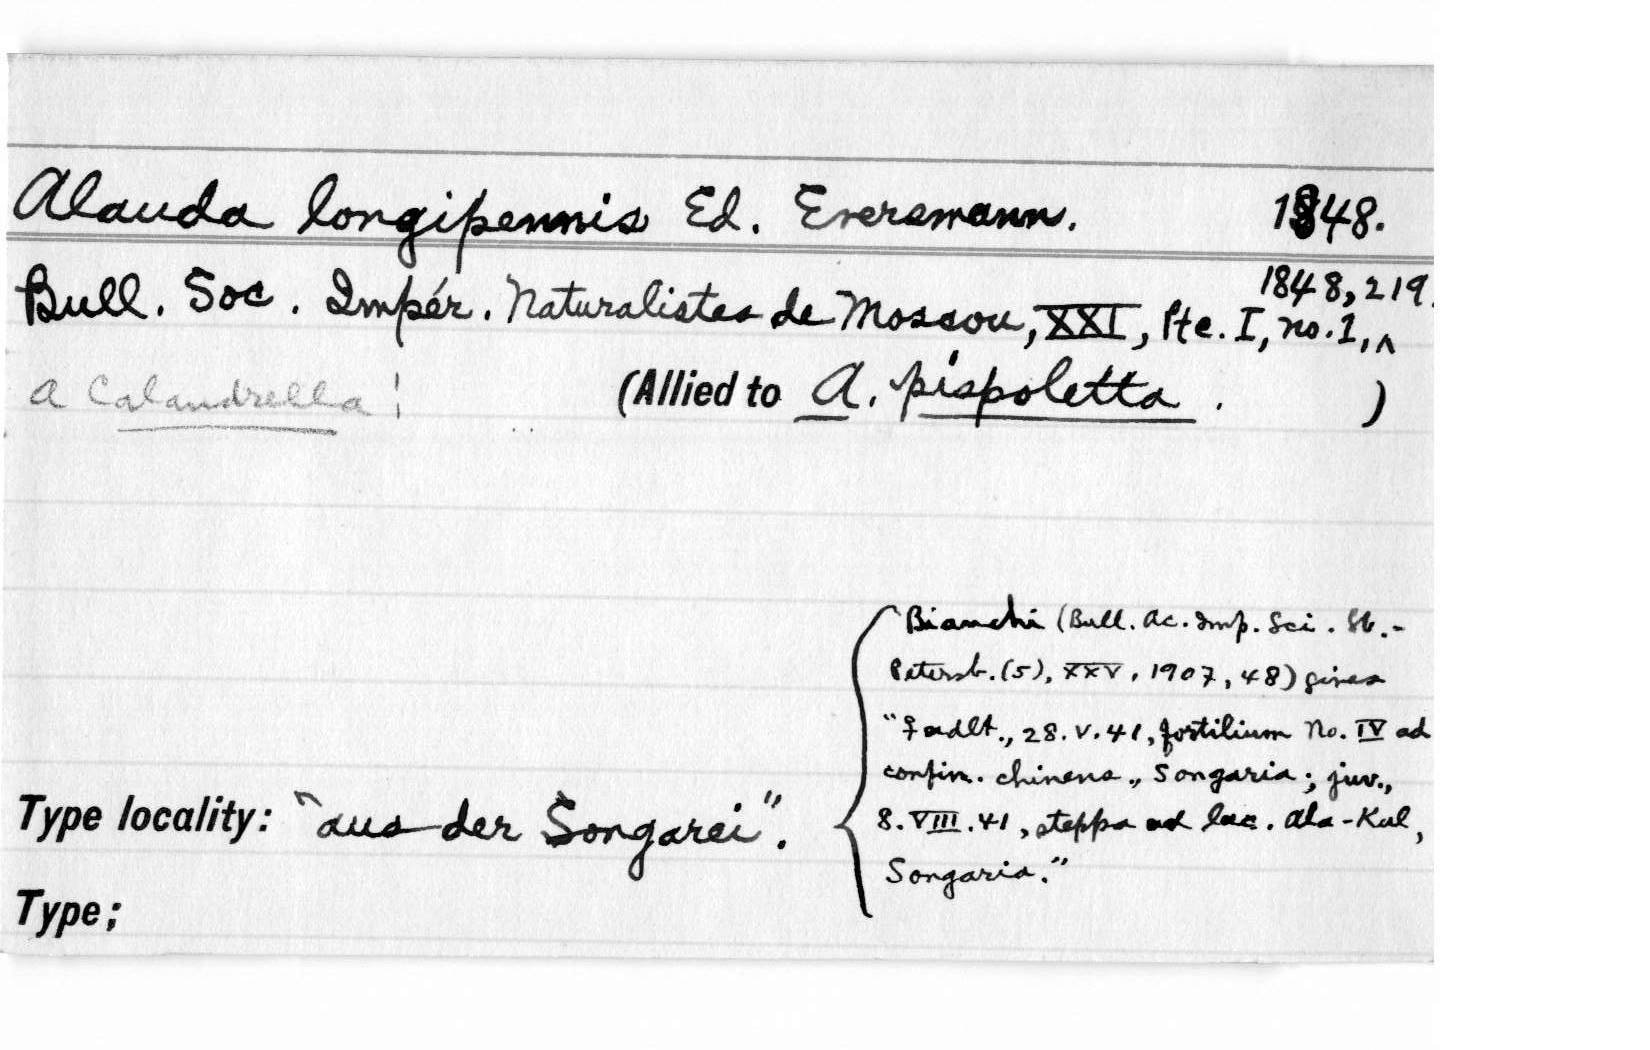 Alauda longipennis Ed. Eversmann. 1848.
Bull. Soc. Impér. Naturalistes de Moscou, XXI, Pte. I, no. 1, ^ 1848, 219.
a Calandrella!
(Allied to A. pispoletta . )
Type locality: "aus der Songarei".
Bianchi (Bull. Ac. Imp. Sci. St.-
Petersb. (5), XXV, 1907, 48) gives
"♀ adlt., 28. V. 41, fortilium No. IV ad
confin. chinens., Songaria; juv.,
8. VIII. 41, steppa ad lac. Ala-Kul,
Songaria."
Type;